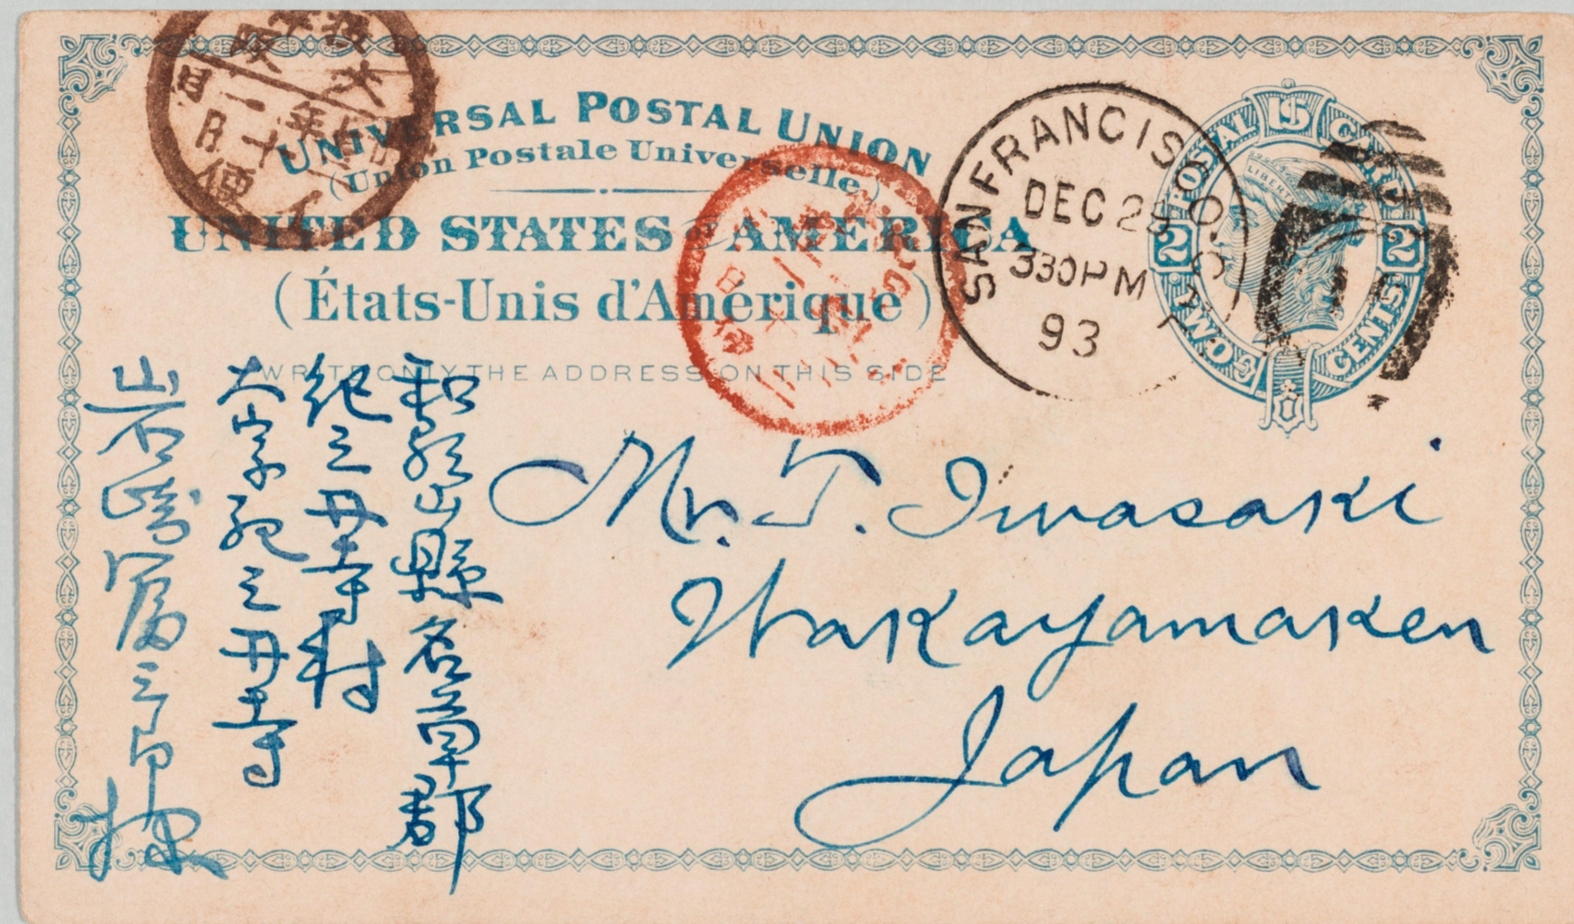 UNIVERSAL POSTAL UNION
(Union Postale Universelle)
UNITED STATES OF AMERICA
(États-Unis d'Amérique)
WRITE ONLY THE ADDRESS ON THIS SIDE
SAN FRANCISCO, CAL
DEC 29
330PM
93
US
POSTAL CARD
2 2
TWO CENTS
LIBERTY
Mr. T. Iwasaki
Wakayamaken
Japan
和歌山縣名草郡
紀三井寺村
大字紀三井寺
岩崎富三郎様
大阪
年
日
便